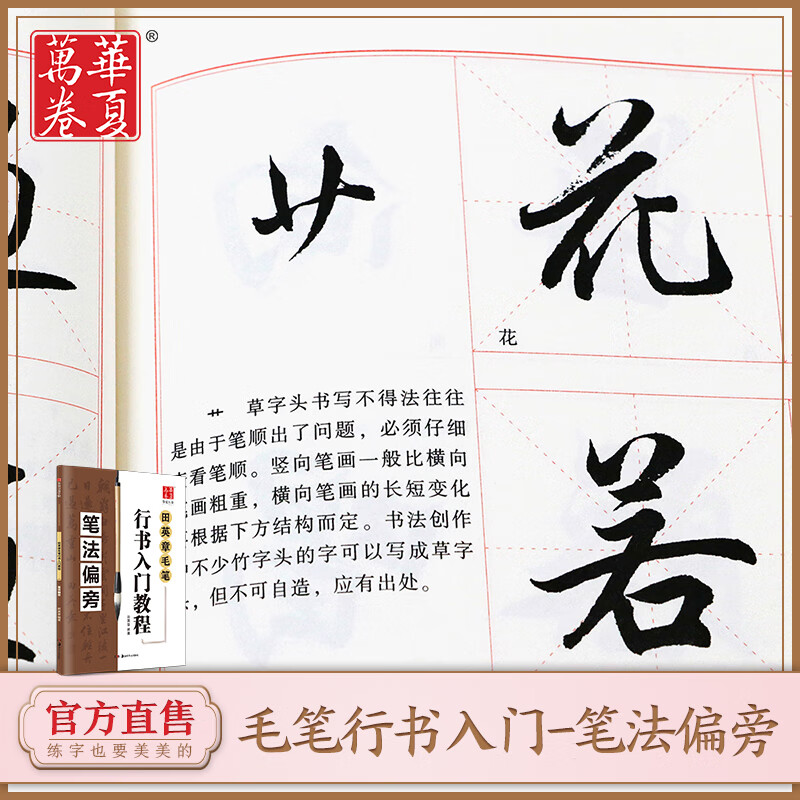 華夏
萬卷
®
艹
花
花
若
艹 草字头书写不得法往往
是由于笔顺出了问题，必须仔细
看笔顺。竖向笔画一般比横向
画粗重，横向笔画的长短变化
根据下方结构而定。书法创作
不少竹字头的字可以写成草字
，但不可自造，应有出处。
田英章毛笔
行书入门教程
笔法偏旁
官方直售
练字也要美美的
毛笔行书入门-笔法偏旁